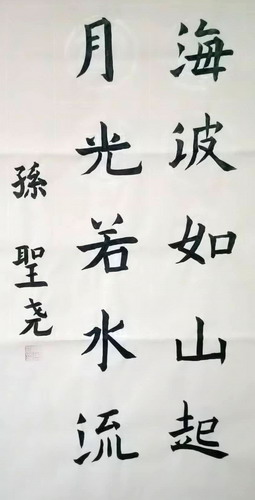 海波如山起
月光若水流
孫聖尧